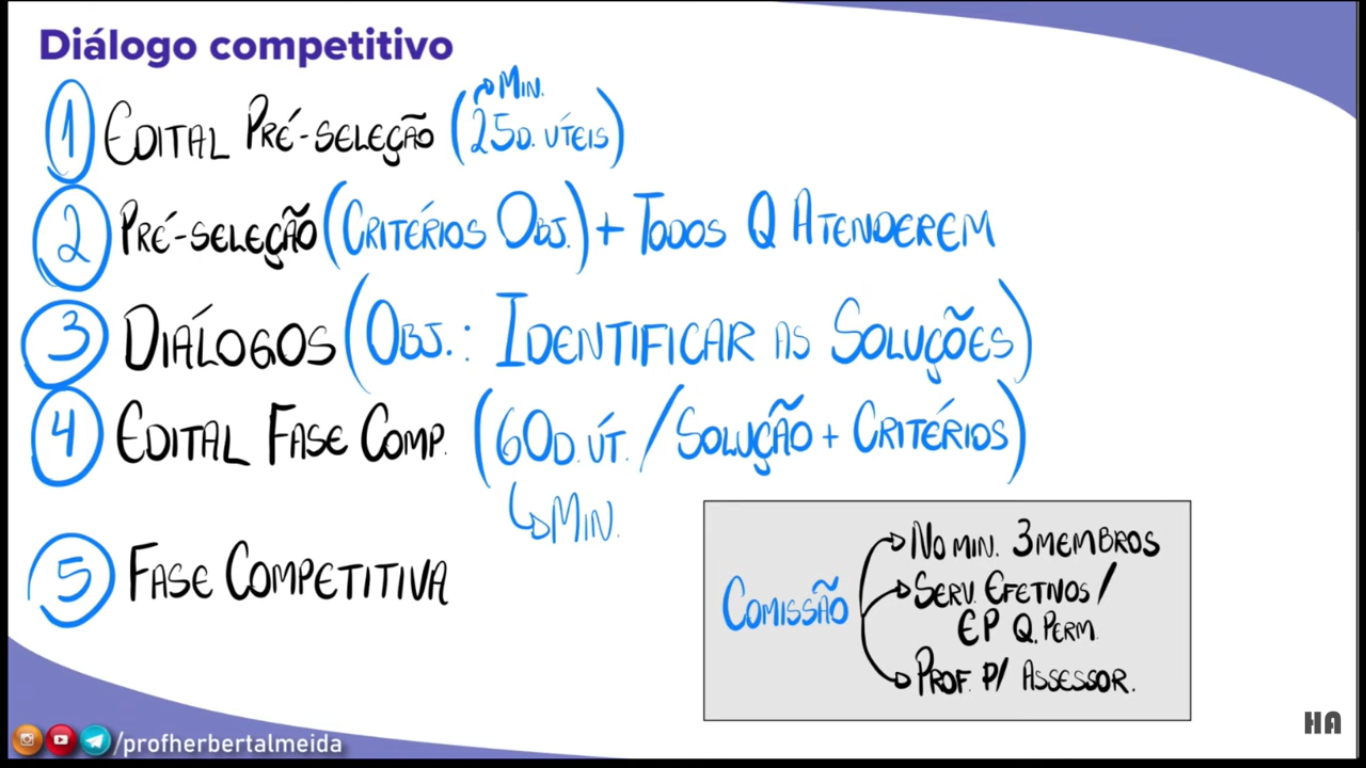 Diálogo competitivo
→ MIN.
1 EDITAL PRÉ-SELEÇÃO (25D. ÚTEIS)
2 PRÉ-SELEÇÃO (CRITÉRIOS OBJ.) + TODOS Q ATENDEREM
3 DIÁLOGOS (OBJ.: IDENTIFICAR AS SOLUÇÕES)
4 EDITAL FASE COMP. (60D. ÚT. / SOLUÇÃO + CRITÉRIOS)
↳ MIN.
5 FASE COMPETITIVA
COMISSÃO
→ NO MIN. 3 MEMBROS
→ SERV. EFETIVOS /
EP Q. PERM.
→ PROF. P/ ASSESSOR.
/profherbertalmeida
HA